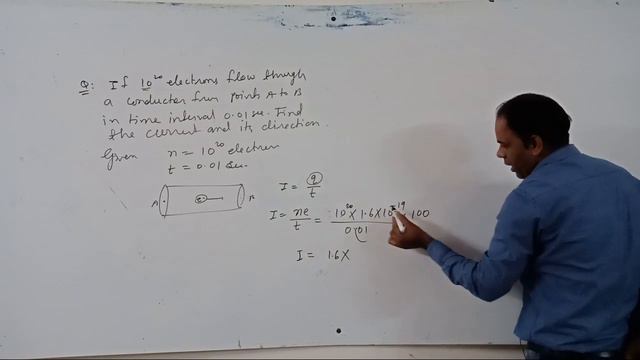 Q: If 10²⁰ electrons flow through
a conductor from points A to B
in time interval 0.01 sec. Find
the current and its direction.
Given n = 10²⁰ electron
t = 0.01 sec.
A e B
I = q/t
I = ne/t = 10²⁰ x 1.6 x 10⁻¹⁹ 100 / 0.01
I = 1.6 x